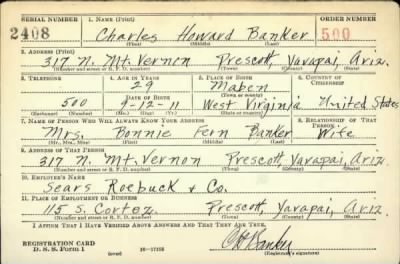 SERIAL NUMBER 1. NAME (Print) ORDER NUMBER
2408 Charles Howard Banker 500
(First) (Middle) (Last)
2. ADDRESS (Print)
317 N. Mt. Vernon Prescott, Yavapai, Ariz.
(Number and street or R. F. D. number) (Town) (County) (State)
3. TELEPHONE 4. AGE IN YEARS 5. PLACE OF BIRTH 6. COUNTRY OF CITIZENSHIP
29 Maben
DATE OF BIRTH (Town or county)
500 9-12-11 West Virginia United States
(Exchange) (Number) (Mo.) (Day) (Yr.) (State or country)
7. NAME OF PERSON WHO WILL ALWAYS KNOW YOUR ADDRESS 8. RELATIONSHIP OF THAT PERSON
Mrs. Bonnie Fern Banker Wife
(Mr., Mrs., Miss) (First) (Middle) (Last)
9. ADDRESS OF THAT PERSON
317 N. Mt. Vernon Prescott, Yavapai, Ariz.
(Number and street or R. F. D. number) (Town) (County) (State)
10. EMPLOYER'S NAME
Sears Roebuck & Co.
11. PLACE OF EMPLOYMENT OR BUSINESS
115 S. Cortez Prescott, Yavapai, Ariz.
(Number and street or R. F. D. number) (Town) (County) (State)
I AFFIRM THAT I HAVE VERIFIED ABOVE ANSWERS AND THAT THEY ARE TRUE.
REGISTRATION CARD
D. S. S. Form 1 (over) 16-17105 (Registrant's signature)